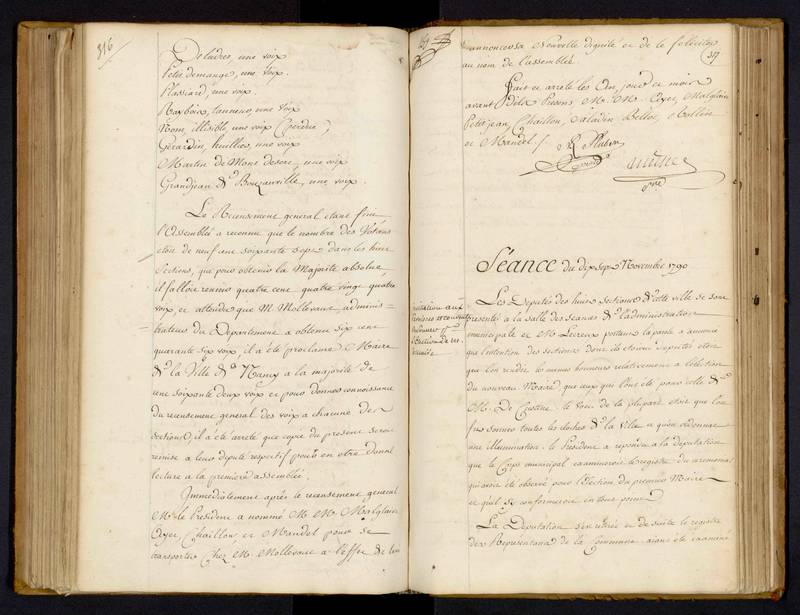 316
Deludres, une voix
Petit demange, une voix.
Plassiard, une voix.
Rayboix, tanneur, une voix
Nom, illisible, une voix (perdue)
Gerardin, huillier, une voix
Martin de Mont desert, une voix
Grandjean de Bouzanville, une voix.
Le Recensement general etant fini
l'Assemblée a reconnu que le nombre des Votans
etoit de neuf cent soixante sept dans les huit
Sections, que pour obtenir la Majorité absolue,
il falloit reunir quatre cent quatre vingt quatre
voix, et attendu que M. Mollevaut, adminis=
trateur du Departement a obtenu six cent
quarante six voix, il a été proclamé Maire
de la Ville de Nancy a la majorité de
cent soixante deux voix et pour donner connoissance
du recensement general des voix a chacune des
sections, il a été arreté que copie du present seroit
remise a leur deputé respectif pour en etre donné
lecture a la premiere assemblée.
Immédiatement après le recensement general
M. le President a nommé M. M. Malglaive
Coyer, Chaillon et Mandel pour se
transporter Chez M. Mollevaut a l'effet de lui
317
annoncer sa Nouvelle dignité et de le feliciter
au nom de l'assemblée.
Fait et arreté les An, jour et mois
avant dits Presens M. M. Coyer, Malglaive
Petitjean, Chaillon, Saladin, Belloc, Rollin
et Mandel ./.
Séance du dix sept Novembre 1790
Les Deputés des huit sections de cette ville se sont
presentés a la salle des seances de l'administration
municipale et M. Lereux portant la parole a annoncé
que l'intention des sections dont ils etoient deputés etoit
que l'on rendit les memes honneurs relativement a l'election
du nouveau Maire, que ceux qui l'ont été pour celle de
M. De Custine, le voeu de la plupart etoit que l'on
fit sonner toutes les cloches de la Ville et qu'on ordonnat
une illumination. le President a repondu a la deputation
que le Corps municipal examineroit le registre du ceremonial
qui avoit été observé pour l'election du premier Maire
et qu'il se conformeroit en tout point
La Deputation s'est retirée et de suite le registre
des Representans de la Commune aiant été examiné